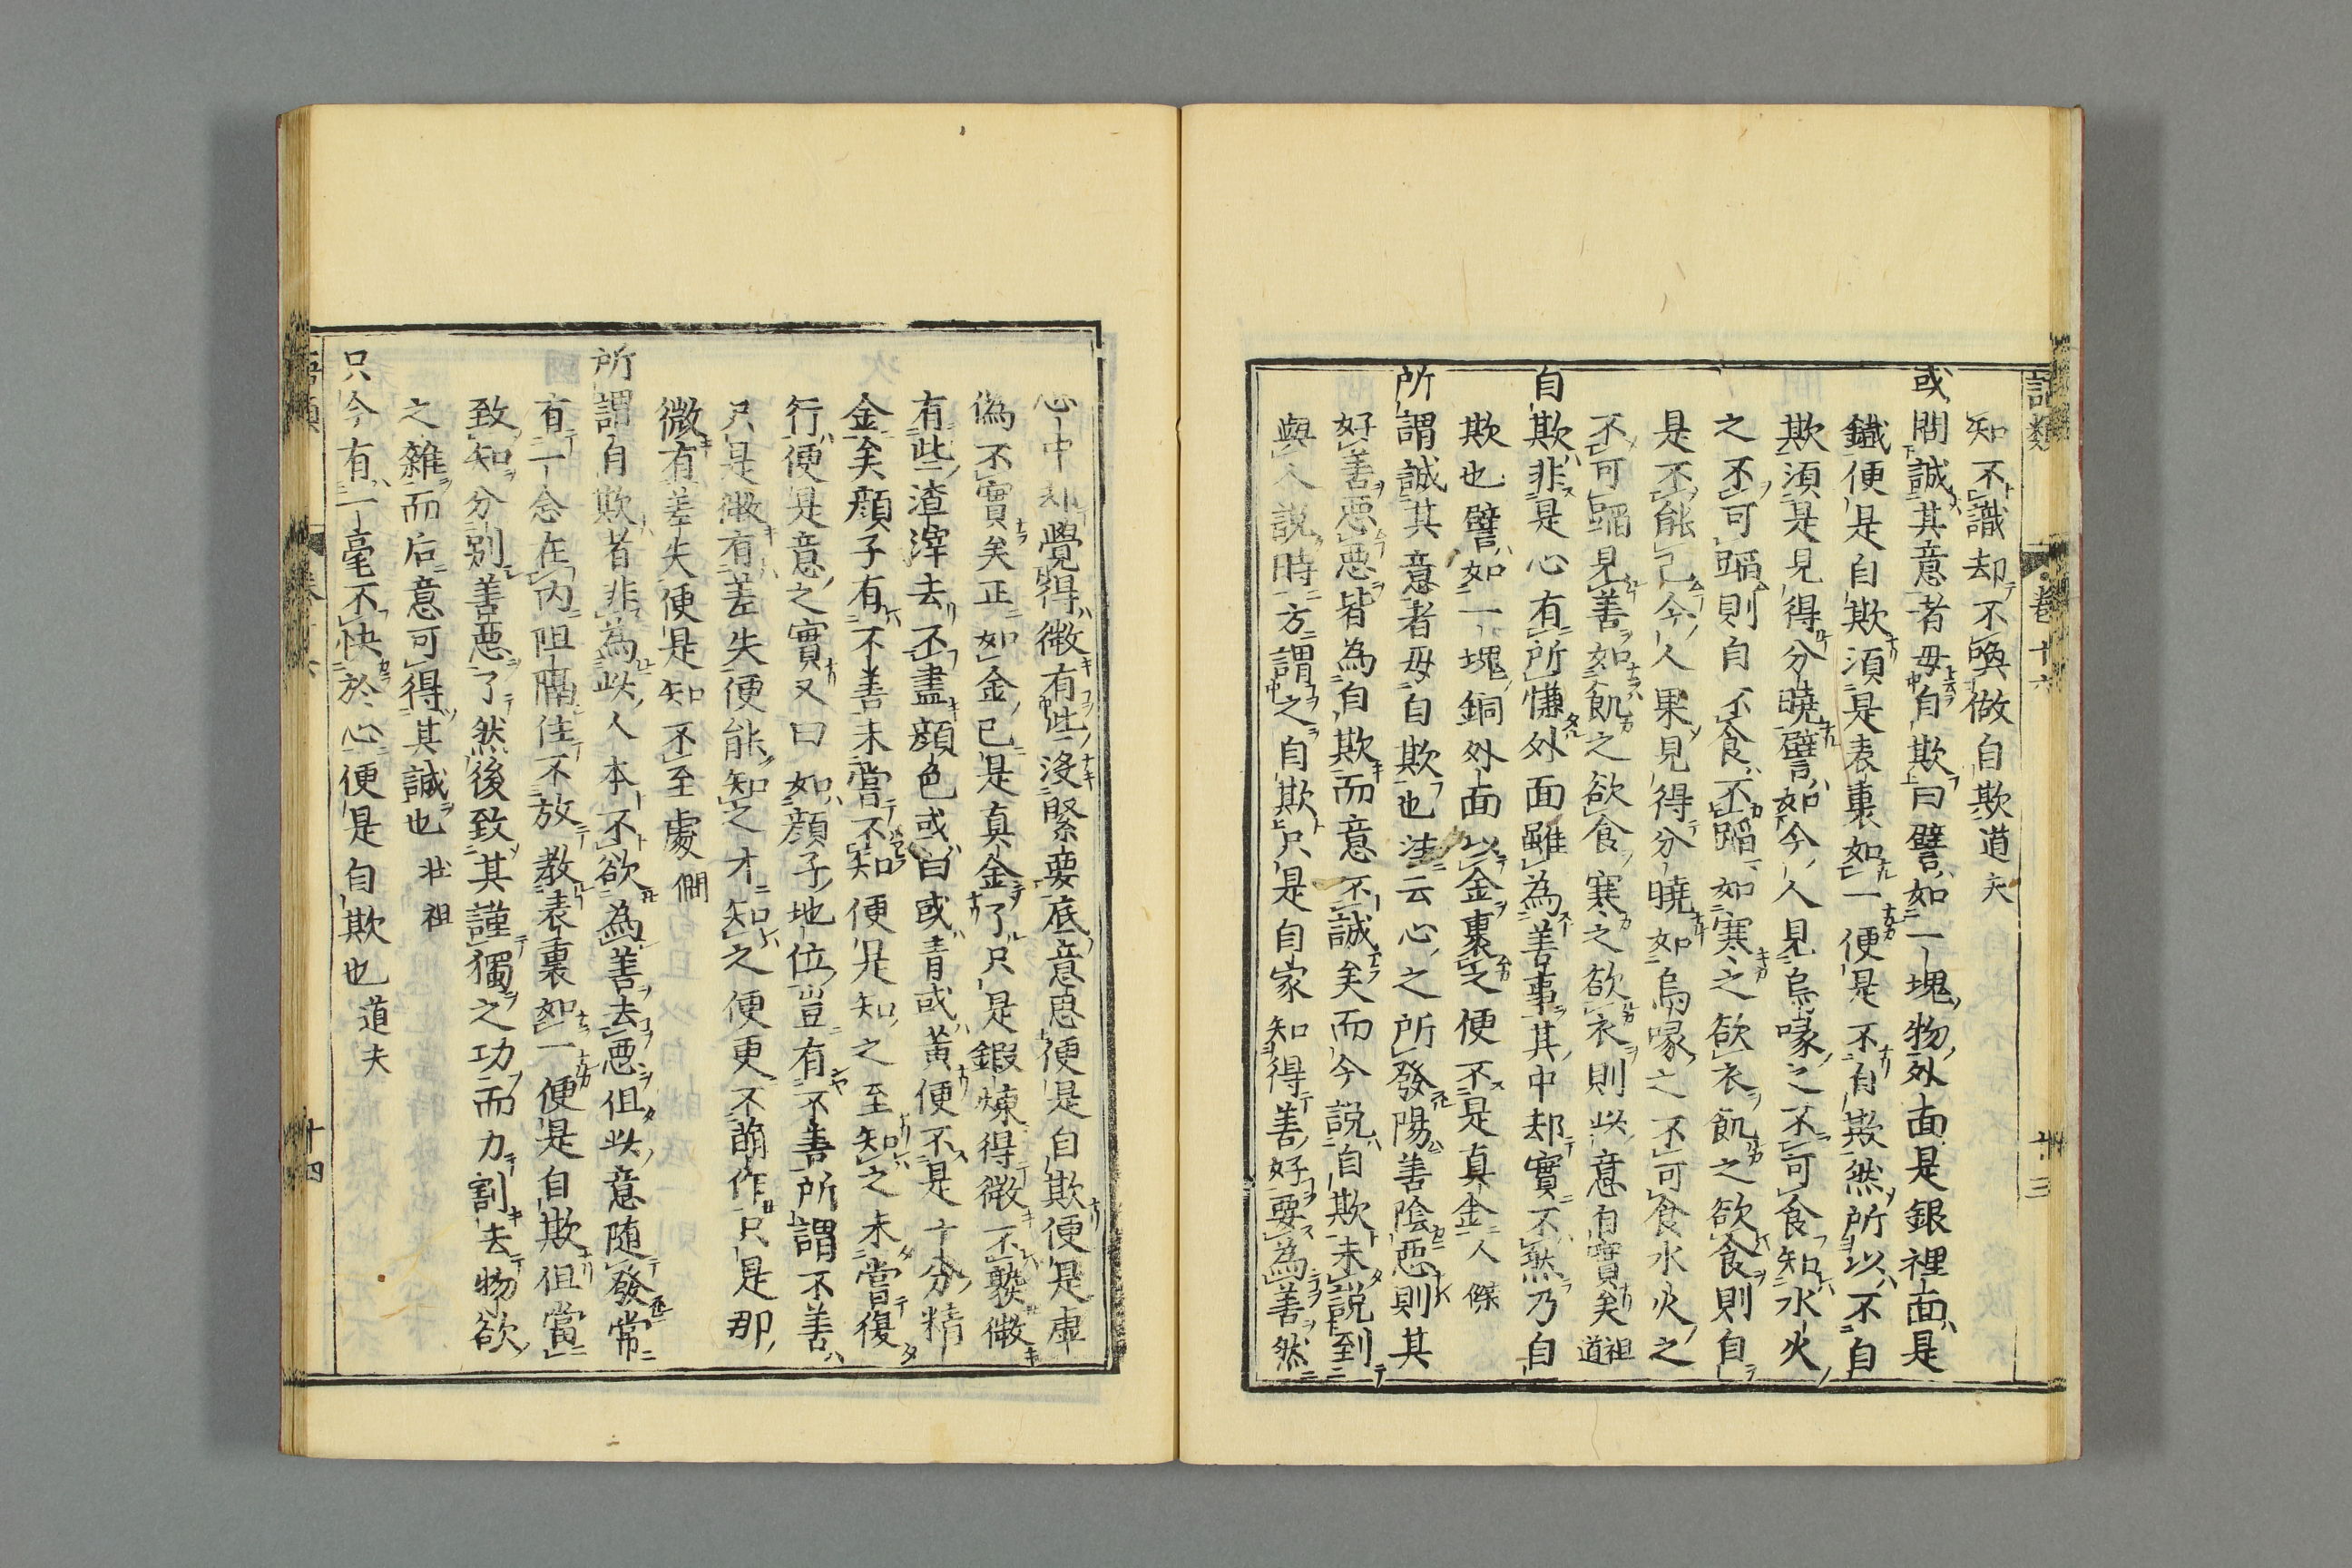 語類 卷十六 十三
知不識却不喚做自欺道夫
或問誠其意者毋自欺曰譬如一塊物外面是銀裡面是
鐵便是自欺須是表裏如一便是不自欺然所以不自
欺須是見得分曉譬如今人見烏喙之不可食知水火
之不可蹈則自不食不蹈如寒之欲衣飢之欲食則自
是不能已今人果見得分曉如烏喙之不可食水火之
不可蹈見善如飢之欲食寒之欲衣則此意自實矣祖道
自欺非是心有所慊外面雖為善事其中却實不然乃自
欺也譬如一塊銅外面以金裹之便不是真金人傑
所謂誠其意者毋自欺也注云心之所發陽善陰惡則其
好善惡惡皆為自欺而意不誠矣而今說自欺未說到
與人說時方謂之自欺只是自家知得善好要為善然
心中却覺得微有些沒緊要底意思便是自欺便是虛
偽不實矣正如金已是真金了只是鍛煉得微不熟微
有些渣滓去不盡顏色或白或青或黃便不是十分精
金矣顏子有不善未嘗不知便是知之至知之未嘗復
行便是意之實又曰如顏子地位豈有不善所謂不善
只是微有差失便能知之才知之便更不萌作只是那
微有差失便是知不至處僩
所謂自欺者非為此人本不欲為善去惡但此意隨發常
有一念在內阻隔住不放教表裏如一便是自欺但當
致知分別善惡了然後致其謹獨之功而力割去物欲
之雜而后意可得其誠也壯祖
只今有一毫不快於心便是自欺也道夫
語類 卷十六 十四